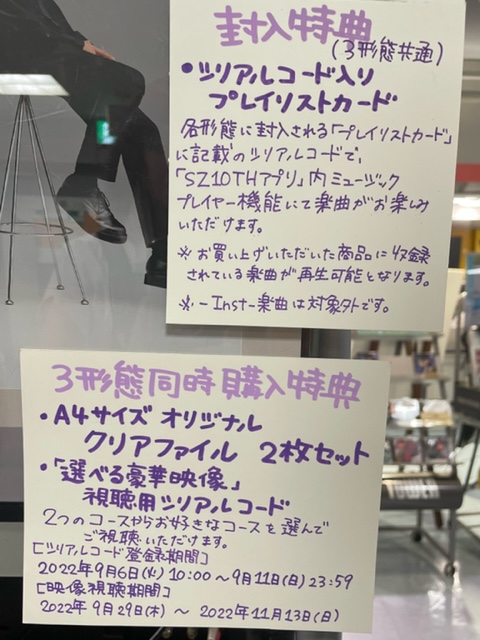 封入特典
(3形態共通)
・シリアルコード入り
プレイリストカード
各形態に封入される「プレイリストカード」
に記載のシリアルコードで、
「SZ10THアプリ」内ミュージック
プレイヤー機能にて楽曲がお楽しみ
いただけます。
※お買い上げいただいた商品に収録
されている楽曲が再生可能となります。
※-Inst-楽曲は対象外です。
3形態同時購入特典
・A4サイズ オリジナル
クリアファイル 2枚セット
・「選べる豪華映像」
視聴用シリアルコード
2つのコースからお好きなコースを選んで
ご視聴いただけます。
[シリアルコード登録期間]
2022年9月6日(火) 10:00～9月11日(日) 23:59
[映像視聴期間]
2022年 9月29日(木) ～ 2022年11月13日(日)
TOWER